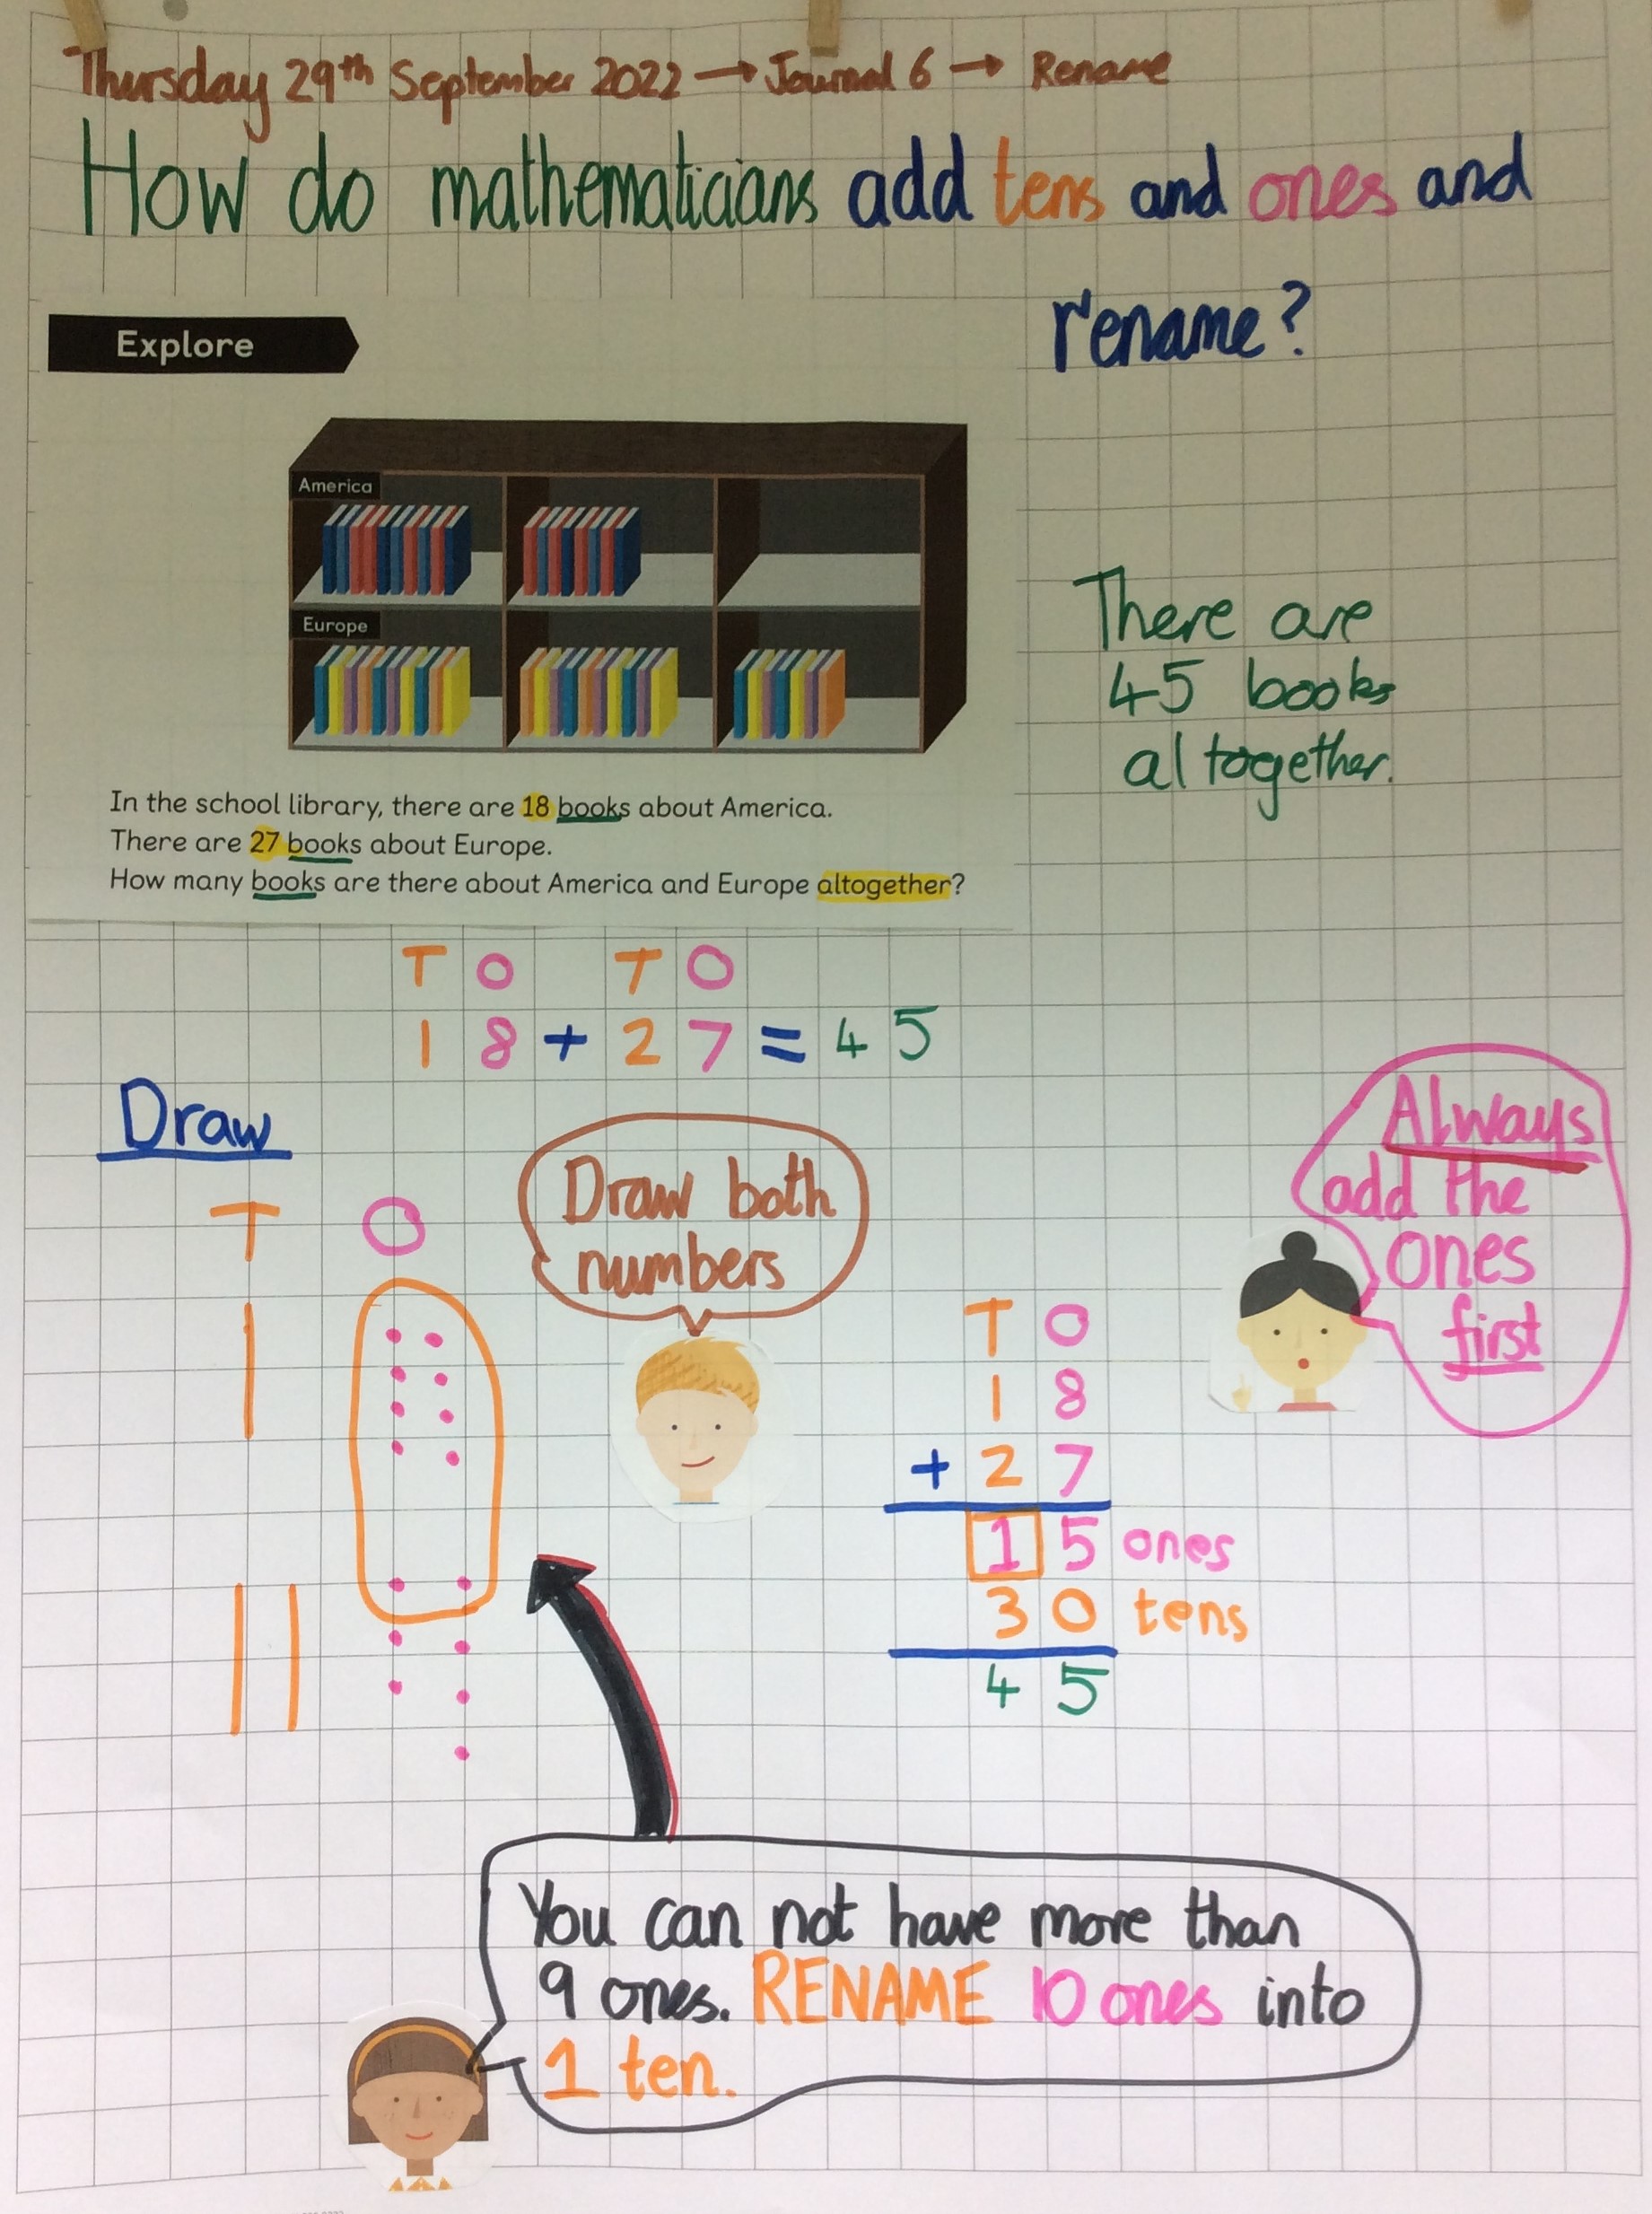 Thursday 29th September 2022 → Journal 6 → Rename
How do mathematicians add tens and ones and
rename?
Explore
America
Europe
There are
45 books
altogether.
In the school library, there are 18 books about America.
There are 27 books about Europe.
How many books are there about America and Europe altogether?
T O T O
18 + 27 = 45
Draw
T O
Draw both
numbers
Always
add the
ones
first
T O
1 8
+ 2 7
1 5 ones
3 0 tens
4 5
You can not have more than
9 ones. RENAME 10 ones into
1 ten.